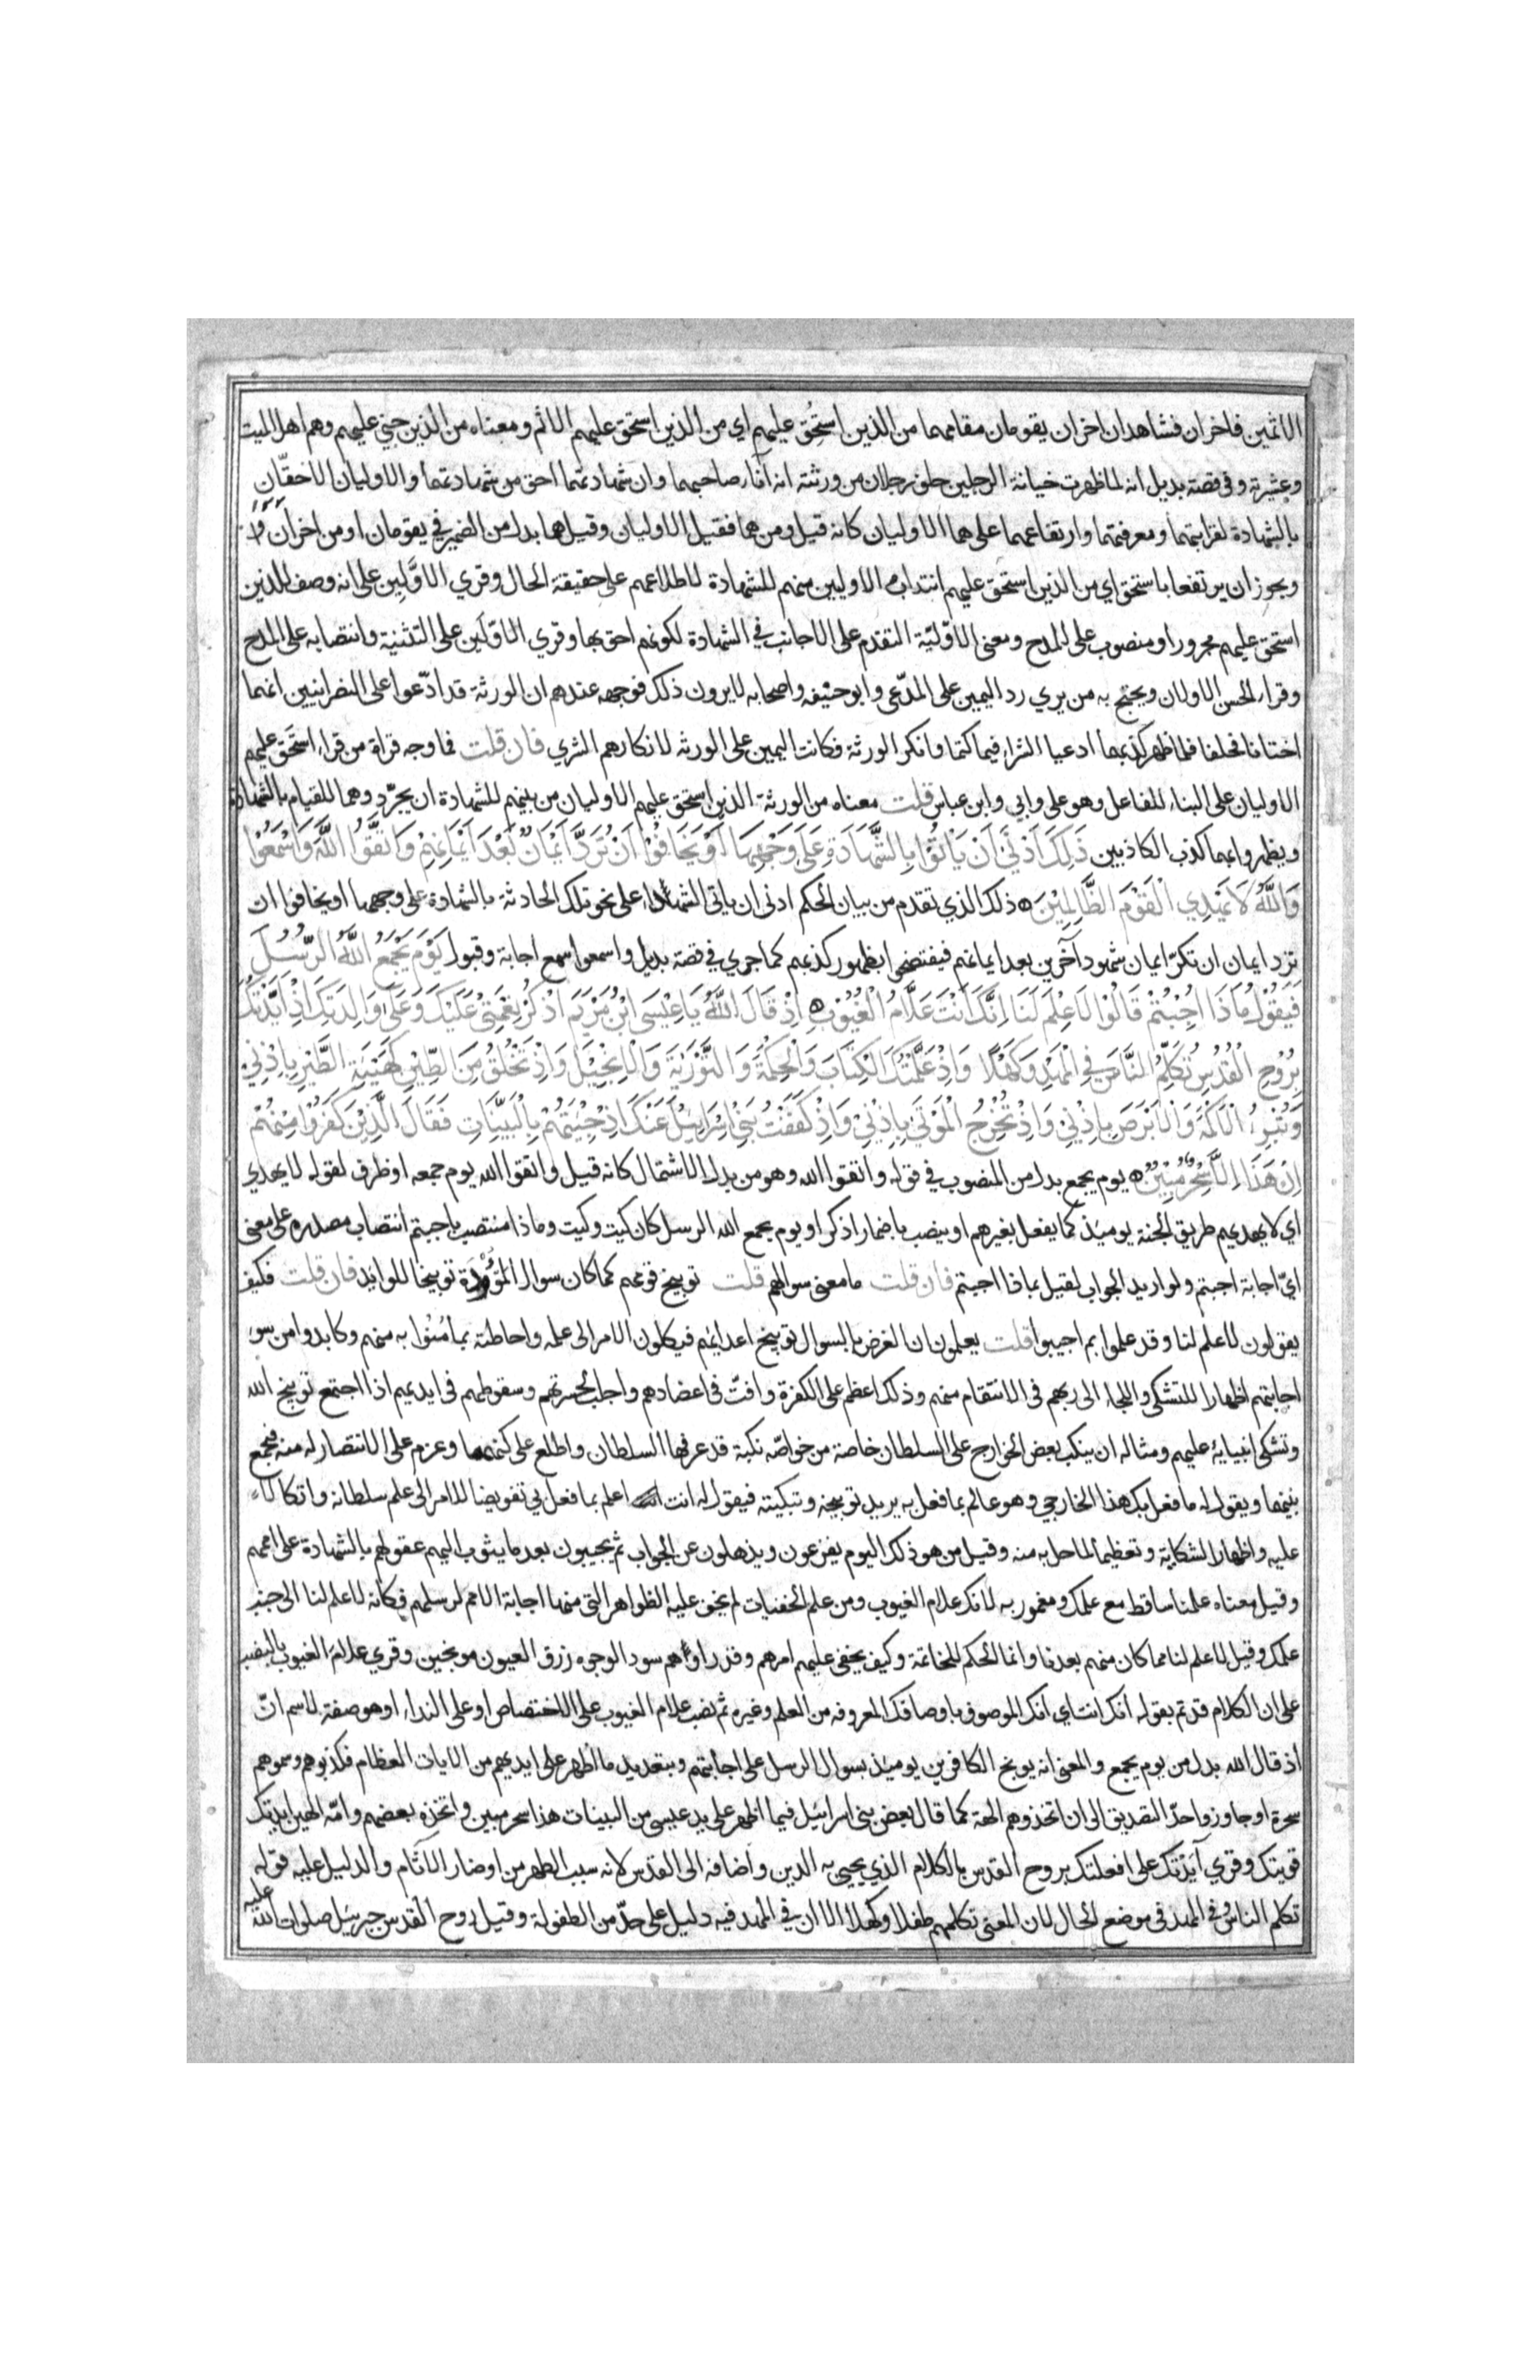 الاثمين فاخران فشاهدان اخران يقومان مقامهما من الذين استُحِق عليهم اي من الذين استحق عليهم الاثم ومعناه من الذين جني عليهم وهم اهل الميت
وعشيرته وفي قصة بديل انه لما ظهرت خيانة الرجلين حلف رجلان من ورثته انه اناء صاحبهما وان شهادتهما احق من شهادتهما والاوليان الاحقّان
بالشهادة لقرابتهما ومعرفتهما وارتفاعهما على هما الاوليان كانه قيل ومن هما فقيل الاوليان وقيل هما بدل من الضمير في يقومان او من اخران
ويجوز ان يرتفعا باستحق اي من الذين استحق عليهم انتداب الاوليين منهم للشهادة لاطلاعهم على حقيقة الحال وقري الاوّلين على انه وصف للذين
استحق عليهم مجرور او منصوب على المدح ومعنى الاوّليّة التقدم على الاجانب في الشهادة لكونهم احق بها وقري الاوّلَين على التثنية وانتصابه على المدح
وقراء الحسن الاولان ويحتج به من يري رد اليمين على المدّعى وابو حنيفه واصحابه لا يرون ذلك فوجهه عندهم ان الورثة قد ادّعوا على النصرانيين انهما
اختانا فحلفا فلما ظهر كذبهما ادعيا الشراء فيما كتما وانكر الورثة فكانت اليمين على الورثه لانكارهم الشري فان قلت فما وجه قراة من قراء استَحَق عليهم
الاوليان على البناء للفاعل وهو علي وابي وابن عباس قلت معناه من الورثة الذين استحق عليهم الاوليان من بينهم للشهادة ان يجرّدوهما للقيام بالشهادة
ويظهروا بهما كذب الكاذبين ذَلِكَ اَدْنَى اَنْ يَاْتُوا بِالشَّهَادَةِ عَلَى وَجْهِهَا اَوْ يَخَافُوْا اَنْ تُرَدَّ اَيْمَانٌ بَعْدَ اَيْمَانِهِمْ وَاتَّقُوا اللَّهَ وَاسْمَعُوْا
وَاللَّهُ لَا يَهْدِي الْقَوْمَ الظَّالِمِيْنَ ذلك الذي تقدم من بيان الحكم ادنى ان ياتى الشهداء على نحو تلك الحادثة بالشهادة على وجهها او يخافوا ان
تردّ ايمان ان تكرّ ايمان شهود آخرين بعد ايمانهم فيفتضحوا بظهور كذبهم كما جري في قصة بديل واسمعوا سمع اجابة وقبول يَوْمَ يَجْمَعُ اللَّهُ الرُّسُلَ
فَيَقُوْلُ مَاذَا اُجِبْتُمْ قَالُوْا لَا عِلْمَ لَنَا اِنَّكَ اَنْتَ عَلَّامُ الْغُيُوْبِ اِذْ قَالَ اللَّهُ يَا عِيْسَى ابْنَ مَرْيَمَ اذْكُرْ نِعْمَتِيْ عَلَيْكَ وَعَلَى وَالِدَتِكَ اِذْ اَيَّدْتُكَ
بِرُوْحِ الْقُدُسِ تُكَلِّمُ النَّاسَ فِي الْمَهْدِ وَكَهْلًا وَاِذْ عَلَّمْتُكَ الْكِتَابَ وَالْحِكْمَةَ وَالتَّوْرَيةَ وَالْاِنْجِيْلَ وَاِذْ تَخْلُقُ مِنَ الطِّيْنِ كَهَيْئَةِ الطَّيْرِ بِاِذْنِي
وَتُبْرِءُ الْاَكْمَهَ وَالْاَبْرَصَ بِاِذْنِيْ وَاِذْ تُخْرِجُ الْمَوْتَى بِاِذْنِيْ وَاِذْ كَفَفْتُ بَنِيْ اِسْرَائِيْلَ عَنْكَ اِذْ جِئْتَهُمْ بِالْبَيِّنَاتِ فَقَالَ الَّذِيْنَ كَفَرُوْا مِنْهُمْ
اِنْ هَذَا اِلَّا سِحْرٌ مُبِيْنٌ يوم يجمع بدل من المنصوب في قوله واتقوا الله وهو من بدل الاشتمال كانه قيل واتقوا الله يوم جمعه او ظرف لقوله لا يهدي
اي لا يهديهم طريق الجنة يوميذ كما يفعل بغيرهم او ينصب باضمار اذكر او يوم يجمع الله الرسل كان كيت وكيت وماذا منتصب باجبتم انتصاب مصدره على معنى
ايّ اجابة اجبتم ولو اريد الجواب لقيل بماذا اجبتم فان قلت ما معنى سوالهم قلت توبيخ قومهم كما كان سوال الموؤدة توبيخا للوائد فان قلت فكيف
يقولون لا علم لنا وقد علموا بم اجيبوا قلت يعلمون ان الغرض بالسوال توبيخ اعدائهم فيكلون الامر الى علمه واحاطته بما مُنُوا به منهم وكابدوا من سوء
اجابتهم اظهارا للتشكى واللجاء الى ربهم فى الانتقام منهم وذلك اعظم على الكفرة وافتّ فى اعضادهم واجلب لحسرتهم وسقوطهم فى ايديهم اذا اجتمع توبيخ الله
وتشكى انبيايه عليهم ومثاله ان ينكب بعض الخوارج على السلطان خاصة من خواصّه نكبة قد عرفها السلطان واطلع على كنهها وعزم على الانتصار له منه فيجمع
بينهما ويقول له ما فعل بك هذا الخارجي وهو عالم بما فعل به يريد توبيخه وتبكيته فيقول له انت اعلم بما فعل بي تفويضا للامر الى علم سلطانه واتكالا
عليه واظهارا لشكاية وتعظيما لما حل به منه وقيل من هول ذلك اليوم يفزعون ويذهلون عن الجواب ثم يجيبون بعد ما يثوب اليهم عقولهم بالشهادة على اممهم
وقيل معناه علمنا ساقط مع علمك ومغمور به لانك علام الغيوب ومن علم الخفيات لم يخف عليه الظواهر التى منها اجابة الامم لرسلهم فكانه لا علم لنا الى جنب
علمك وقيل لا علم لنا مما كان منهم بعدنا وانما الحكم للخاتمة وكيف يخفى عليهم امرهم وقد راوهم سود الوجوه زرق العيون موبخين وقري علامَ الغيوب بالنصب
على ان الكلام قد تم بقوله انك انت اي انك الموصوف باوصافك المعروفه من العلم وغيره ثم نصب علام الغيوب على الاختصاص او على النداء او هو صفة لاسم انّ
اذ قال الله بدل من يوم يجمع والمعنى انه يوبخ الكافرين يوميذ بسوال الرسل على اجابتهم وبتعديد ما اظهر على ايديهم من الايات العظام فكذبوهم وسموهم
سحرة او جاوزوا حدّ التصديق الى ان اتخذوهم الهة كما قال بعض بنى اسرائيل فيما اظهر على يد عيسى من البينات هذا سحر مبين واتخذه بعضهم وامّه الهين ايدتك
قويتك وقري آيَدْتك على افعلتك بروح القدس بالكلام الذي يحيى به الدين واضافه الى القدس لانه سبب الطهر من اوضار الاثام والدليل عليه قوله
تكلم الناس في المهد فى موضع الحال لان المعنى تكلمهم طفلا وكهلا الا ان في المهد فيه دليل على حدّ من الطفولة وقيل روح القدس جبرئيل صلوات الله عليه